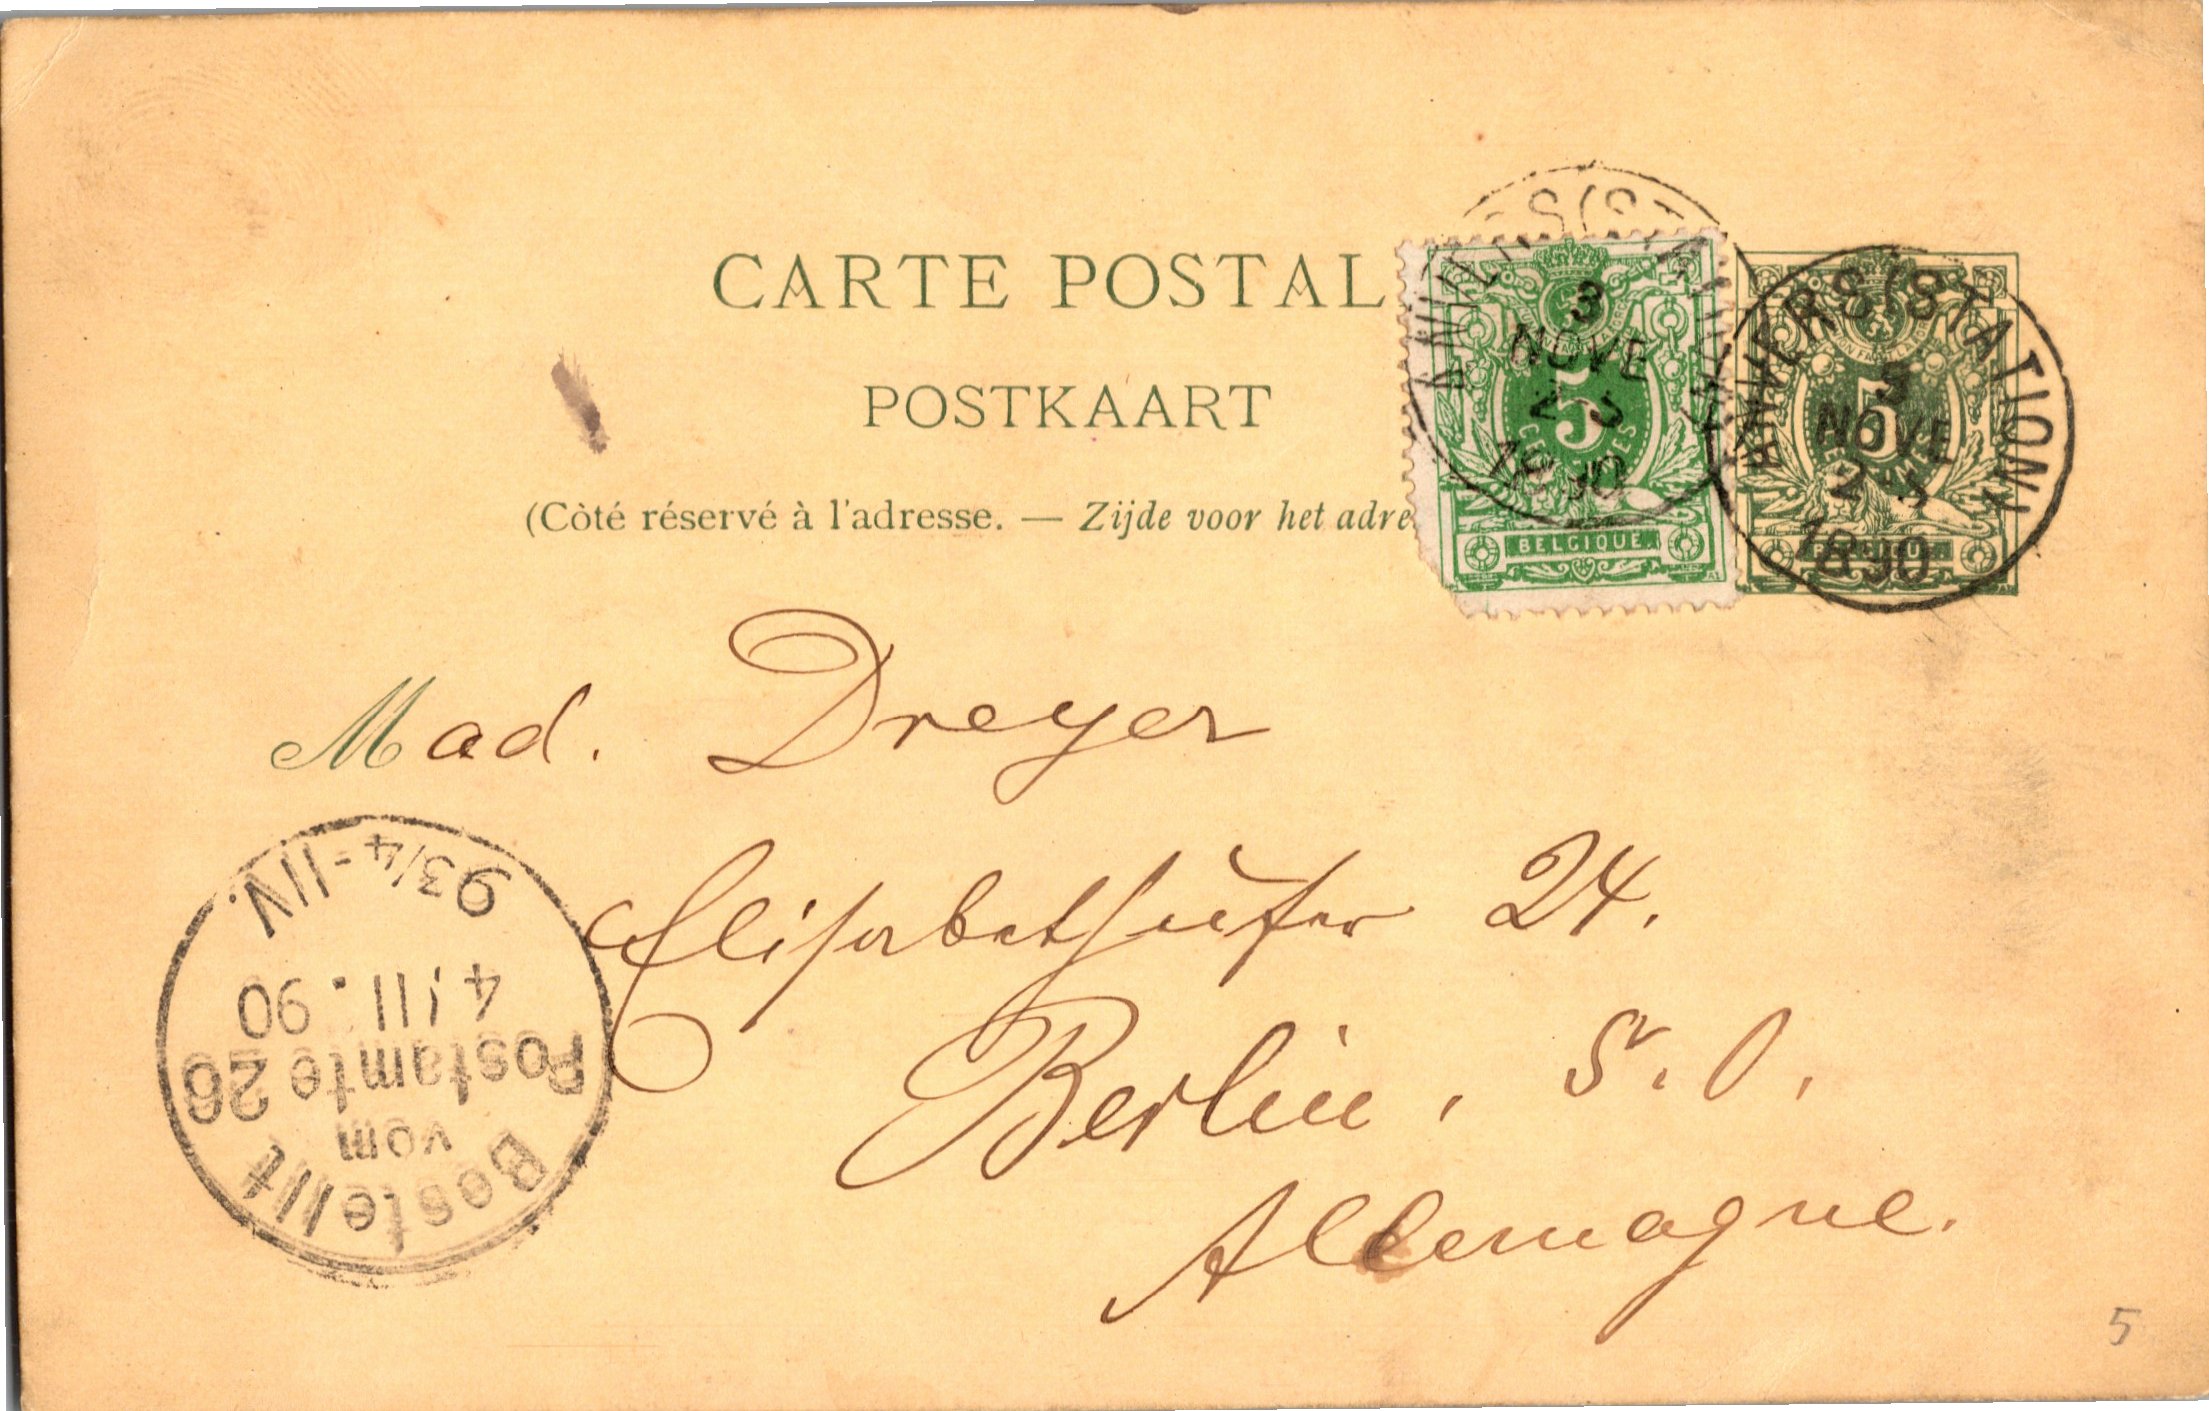 CARTE POSTAL
POSTKAART
(Côté réservé à l'adresse. — Zijde voor het adre
ANVERS (STATION)
3
NOVE
1890
5
CENTIMES
BELGIQUE
ANVERS (STATION)
3
NOVE
1890
5
CENTIMES
BELGIQUE
Mad. Dreyer
Elisabethufer 24.
Berlin, S. O.
Allemagne.
Bestellt
vom
Postamte 26
4/11.90
9 3/4-11V.
5